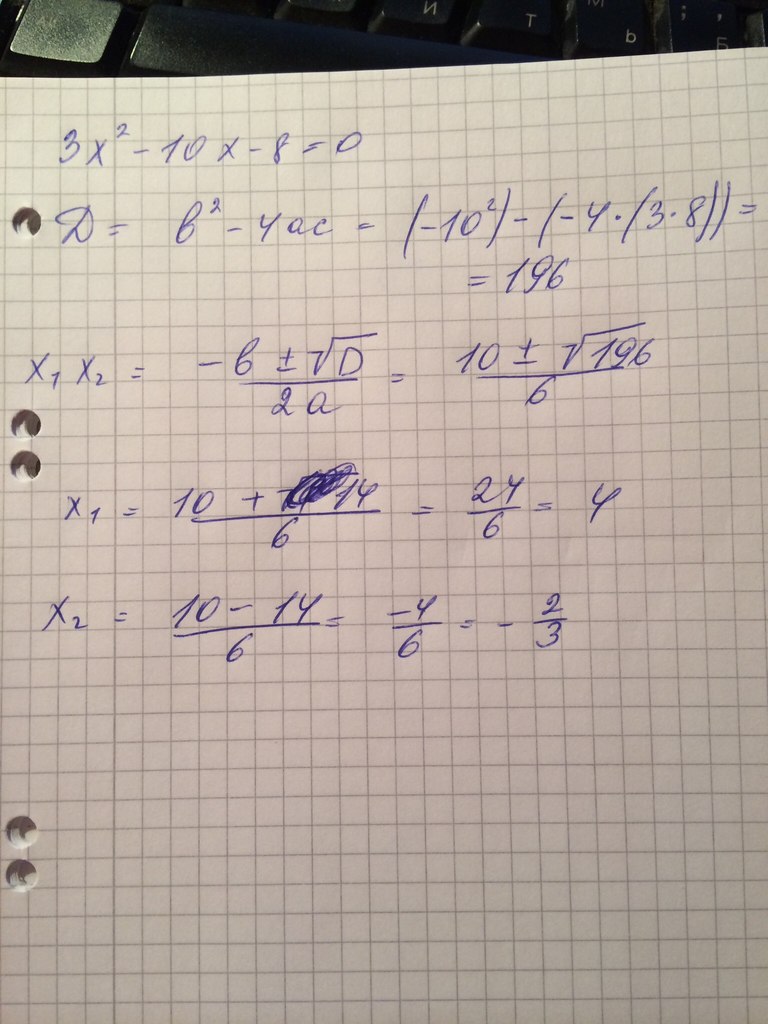 И Т М Ь ; , Б
3x² - 10x - 8 = 0
D = b² - 4ac = (-10²) - (-4·(3·8)) =
= 196
x₁ x₂ = -b ± √D / 2a = 10 ± √196 / 6
x₁ = 10 + 14 / 6 = 24 / 6 = 4
x₂ = 10 - 14 / 6 = -4 / 6 = - 2 / 3